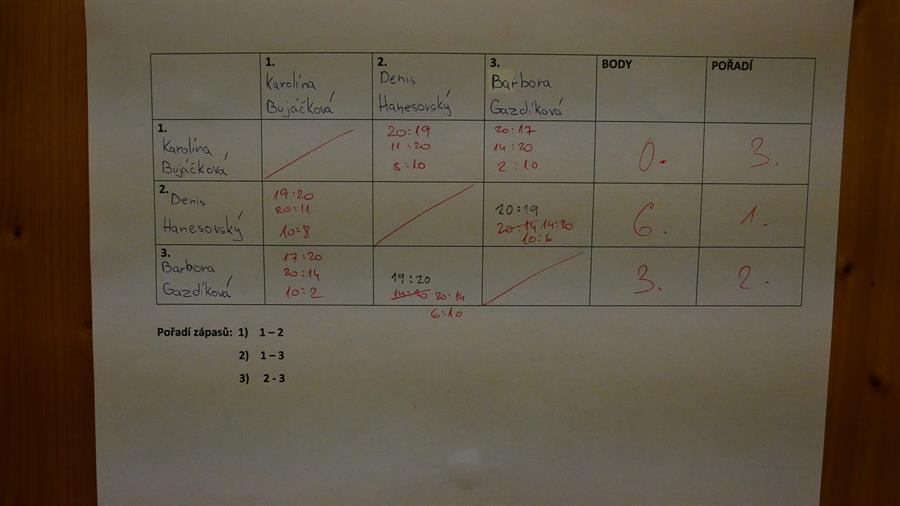 1. 2. 3. BODY POŘADÍ
Karolína Denis Barbora
Bujáčková Hanesovský Gazdíková
1. 20:19 20:17
Karolína 11:20 14:20 0. 3.
Bujáčková 8:10 2:10
2. Denis 19:20 20:19
Hanesovský 20:11 20:14 14:20 6. 1.
10:8 10:6
3. 17:20
Barbora 20:14 19:20 3. 2.
Gazdíková 10:2 14:20 20:14
6:10
Pořadí zápasů: 1) 1 – 2
2) 1 – 3
3) 2 - 3